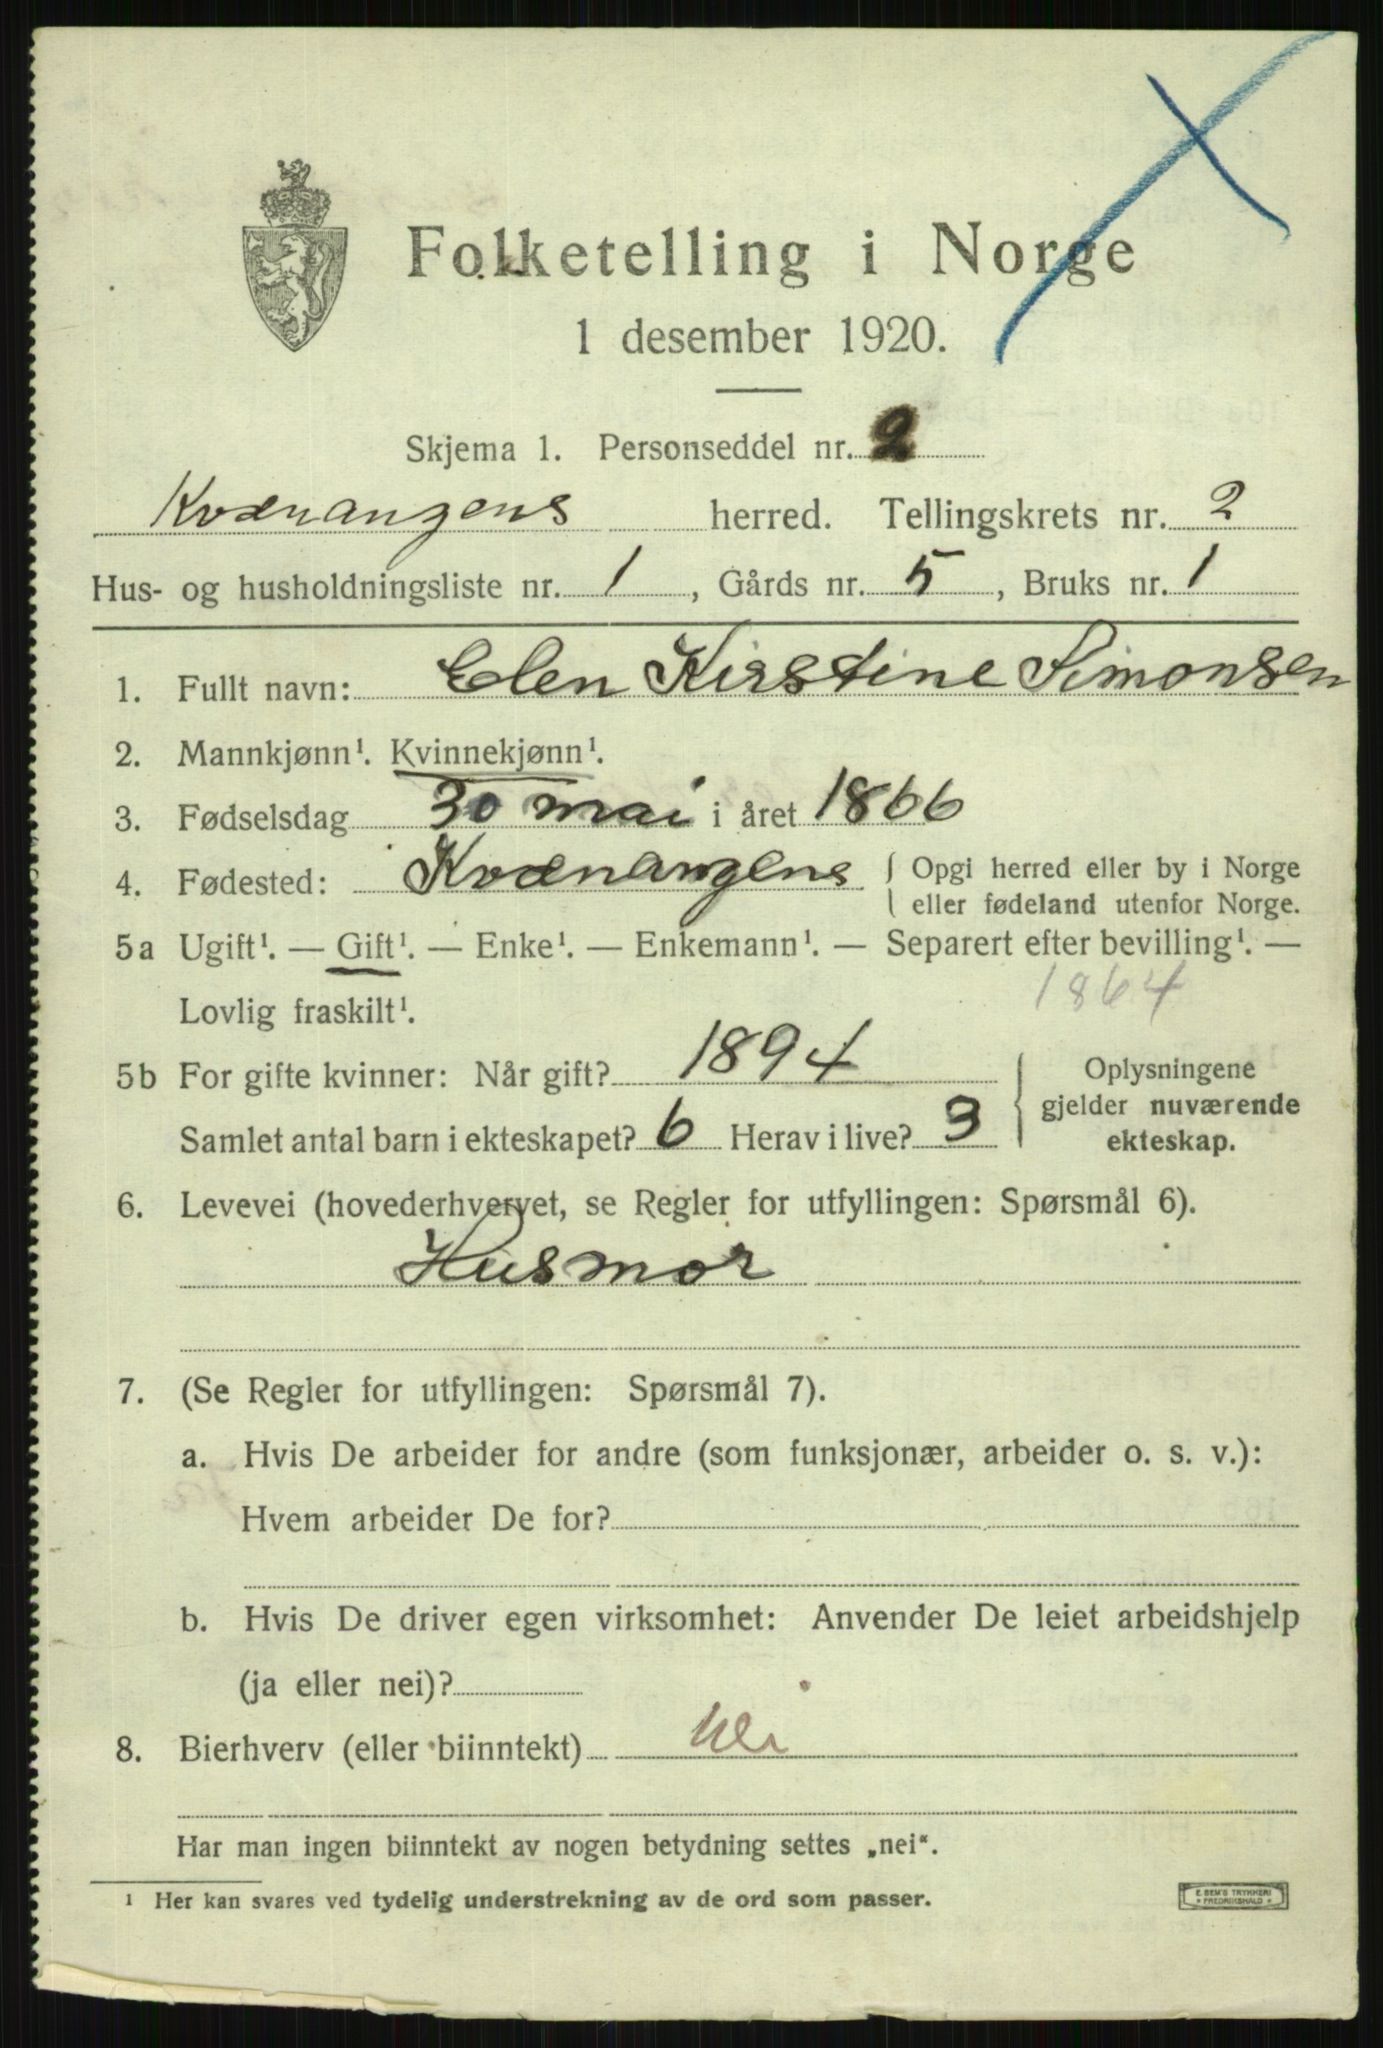 Folketelling i Norge
1 desember 1920.
Skjema 1. Personseddel nr. 2
Kvænangens herred. Tellingskrets nr. 2
Hus- og husholdningsliste nr. 1, Gårds nr. 5, Bruks nr. 1
1. Fullt navn: Elen Kirstine Simonsen
2. Mannkjønn¹. Kvinnekjønn¹.
3. Fødselsdag 30 mai i året 1866
4. Fødested: Kvænangens { Opgi herred eller by i Norge
eller fødeland utenfor Norge.
5a Ugift¹. — Gift¹. — Enke¹. — Enkemann¹. — Separert efter bevilling¹. —
1864
Lovlig fraskilt¹.
5b For gifte kvinner: Når gift? 1894 { Oplysningene
gjelder nuværende
Samlet antal barn i ekteskapet? 6 Herav i live? 3 ekteskap.
6. Levevei (hovederhvervet, se Regler for utfyllingen: Spørsmål 6).
Husmor
7. (Se Regler for utfyllingen: Spørsmål 7).
a. Hvis De arbeider for andre (som funksjonær, arbeider o. s. v.):
Hvem arbeider De for?
b. Hvis De driver egen virksomhet: Anvender De leiet arbeidshjelp
(ja eller nei)?
8. Bierhverv (eller biinntekt) Nei
Har man ingen biinntekt av nogen betydning settes „nei“.
¹ Her kan svares ved tydelig understrekning av de ord som passer.
E. SEM'S TRYKKERI
* FREDRIKSHALD *